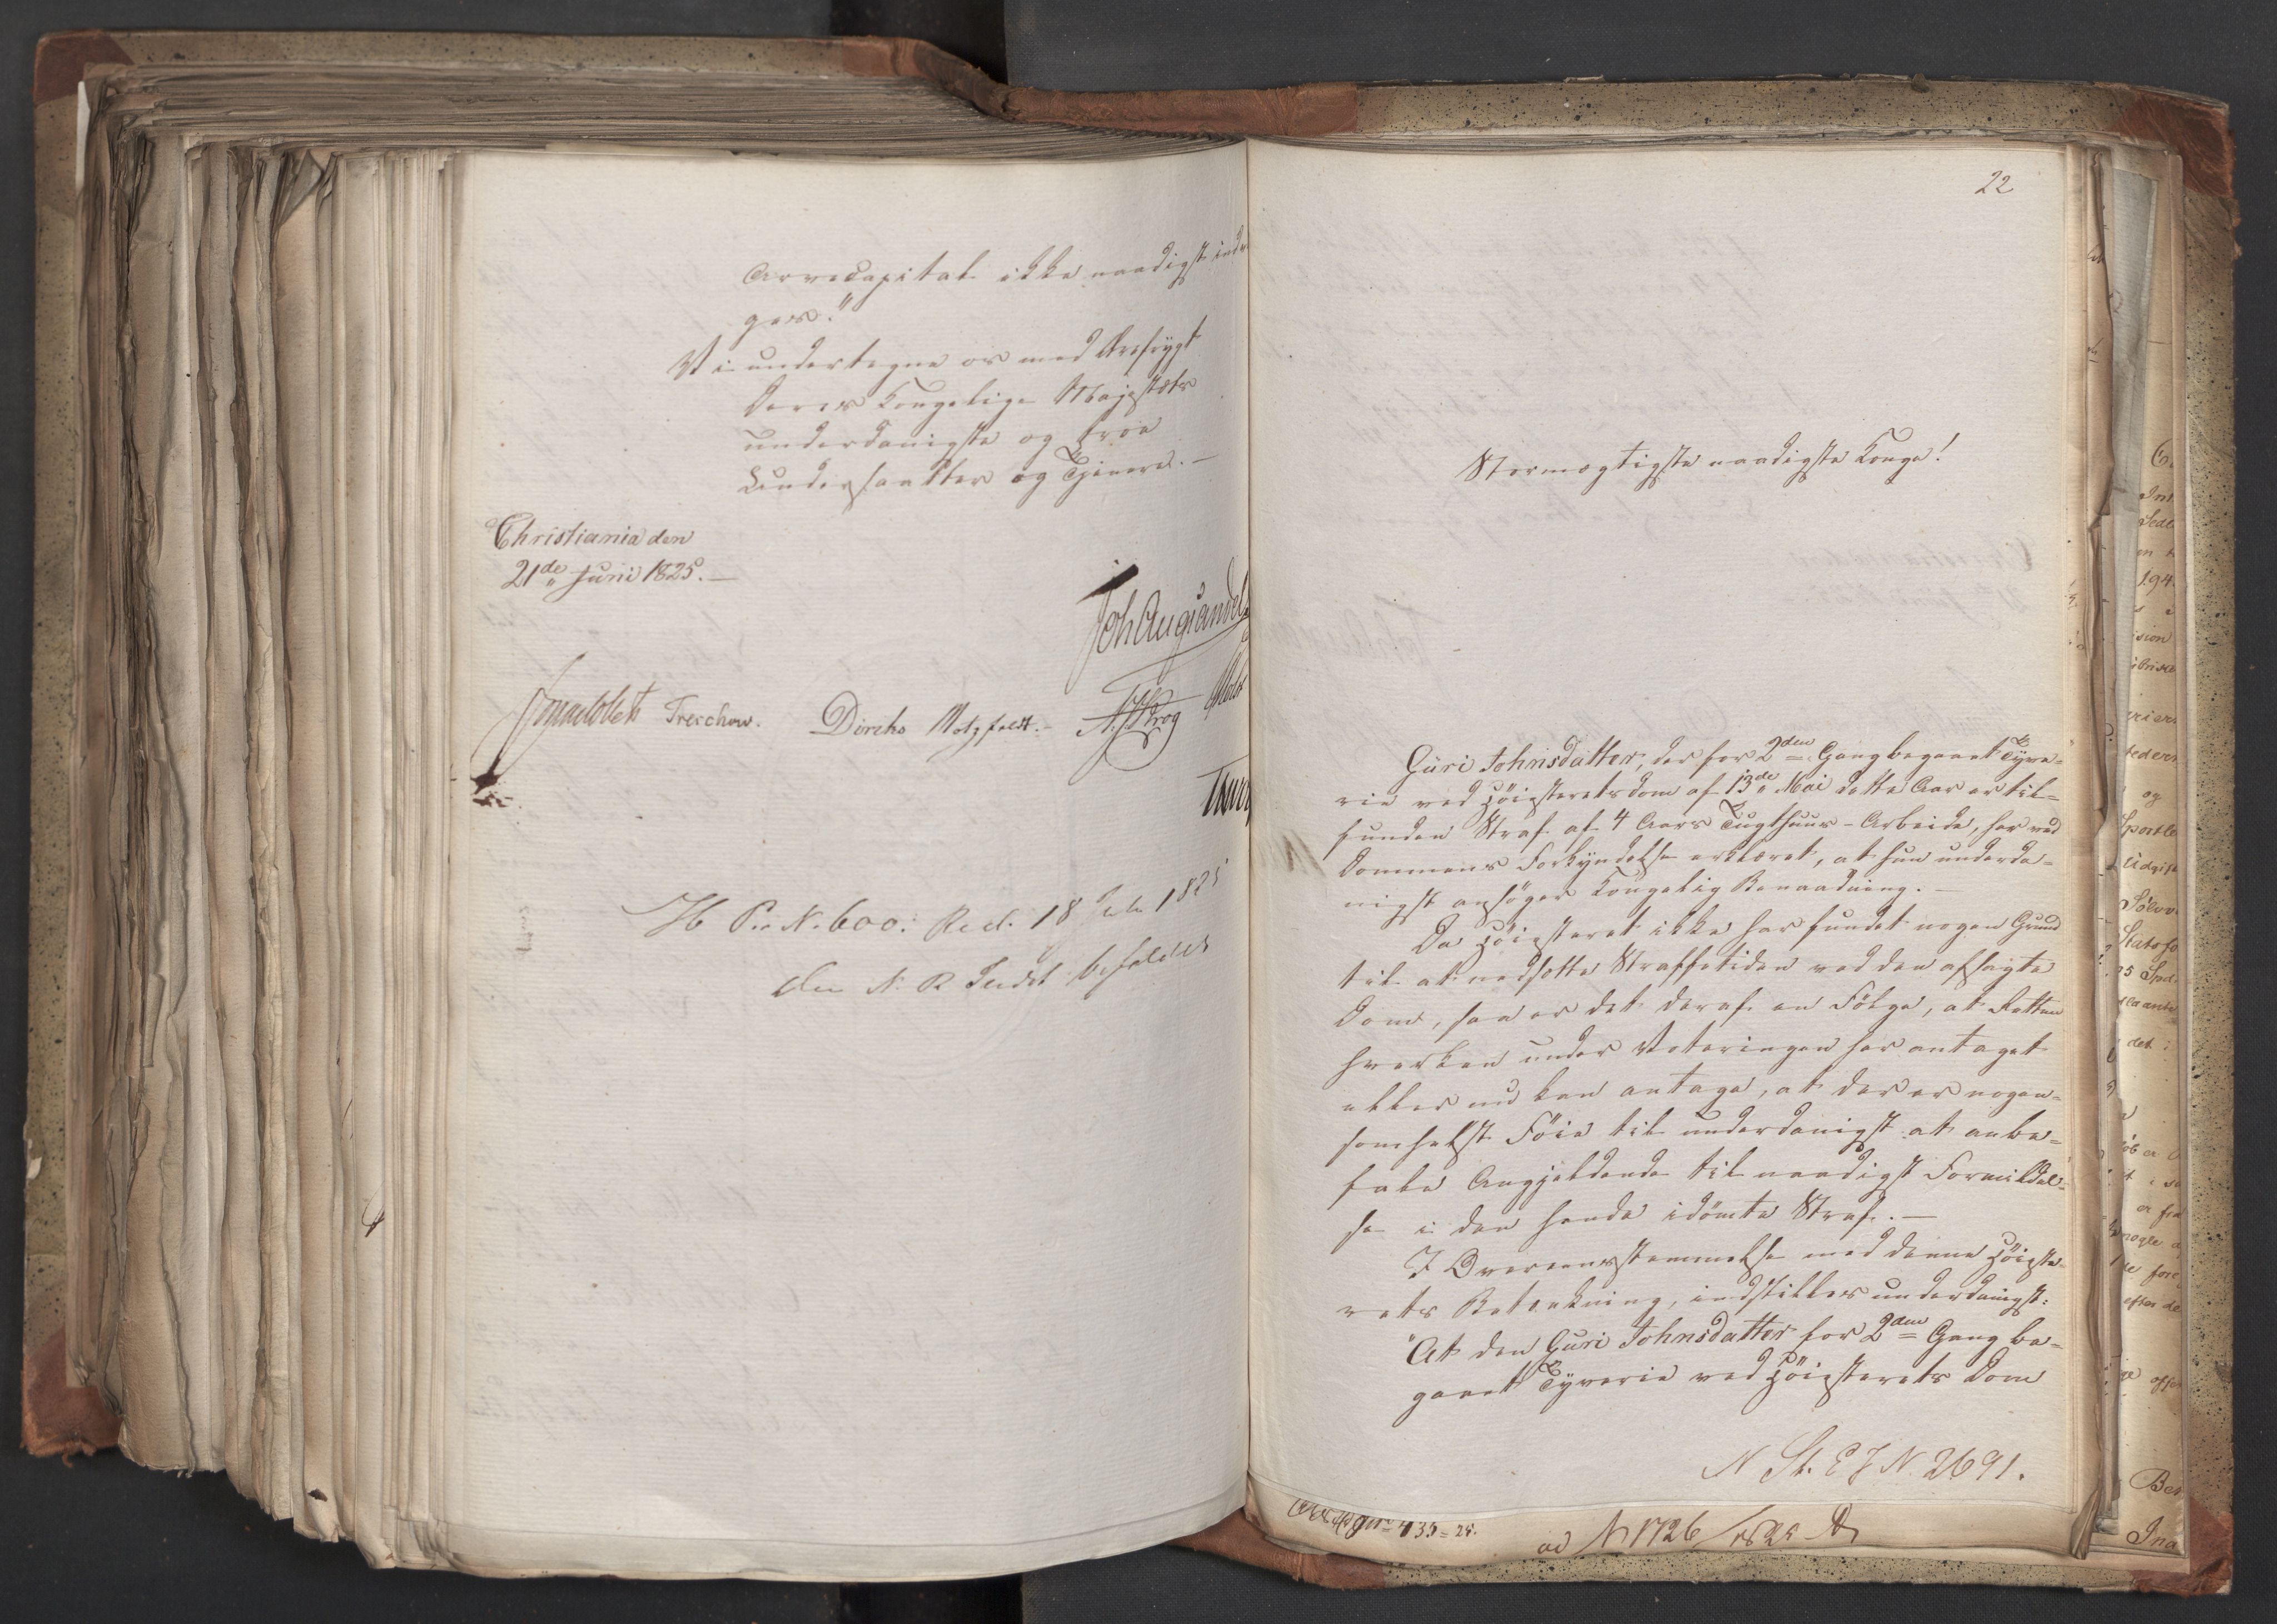 Arvecapital ikke naadigst inddra
ges."
Vi undertegne os med Ærefrygt
Deres Kongelige Majestæts
underdanigste og troe
Undersaatter og Tjenere. —
Christiania den
21de Juni 1825. —
Joh Aug Sandels
Jonas Collett Treschow. Diriks Motzfeldt. — A. J. Krog
H Pr. N. 600. Red. 18 Juli 1825
den N. R Indst. befalede
22
Stormægtigste naadigste Konge!
Guri Johnsdatter, der for 2den Gang begaaet Tyve=
rie ved Höiesteretsdom af 13de Mai dette Aar er til=
funden Straf af 4 Aars Tugthuus-Arbeide, har ved
Dommens Forkyndelse erklæret, at hun underda=
nigst ansöger Kongelig Benaadning. —
Da Höiesteret ikke har fundet nogen Grund
til at nedsætte Straffetiden ved den afsagte
Dom, saa er det deraf en Fölge, at Retten
hverken under Voteringen har antaget
eller nu kan antage, at der er nogen=
somhelst Föie til underdanigst at anbe=
fale Angjeldende til naadigst Formildel=
se i den hende idömte Straf. —
I Overeensstemmelse med denne Höieste=
rets Betænkning, indstilles underdanigst:
"At den Guri Johnsdatter for 2den Gang be=
gaaet Tyverie ved Höiesterets Dom
N St. E J N. 2691.
435=25.
ad N 1726/1825